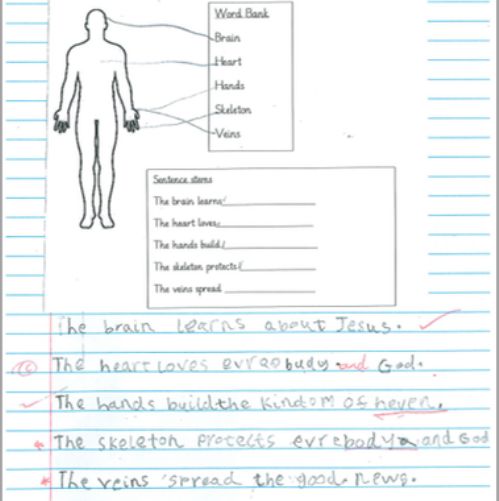 Word Bank
Brain
Heart
Hands
Skeleton
Veins
Sentence stems
The brain learns
The heart loves
The hands build
The skeleton protects
The veins spread
The brain learns about Jesus.
The heart loves evraobudy and God.
The hands build the Kindom of heven.
The skeleton protects evrebody and God
The veins spread the good news.